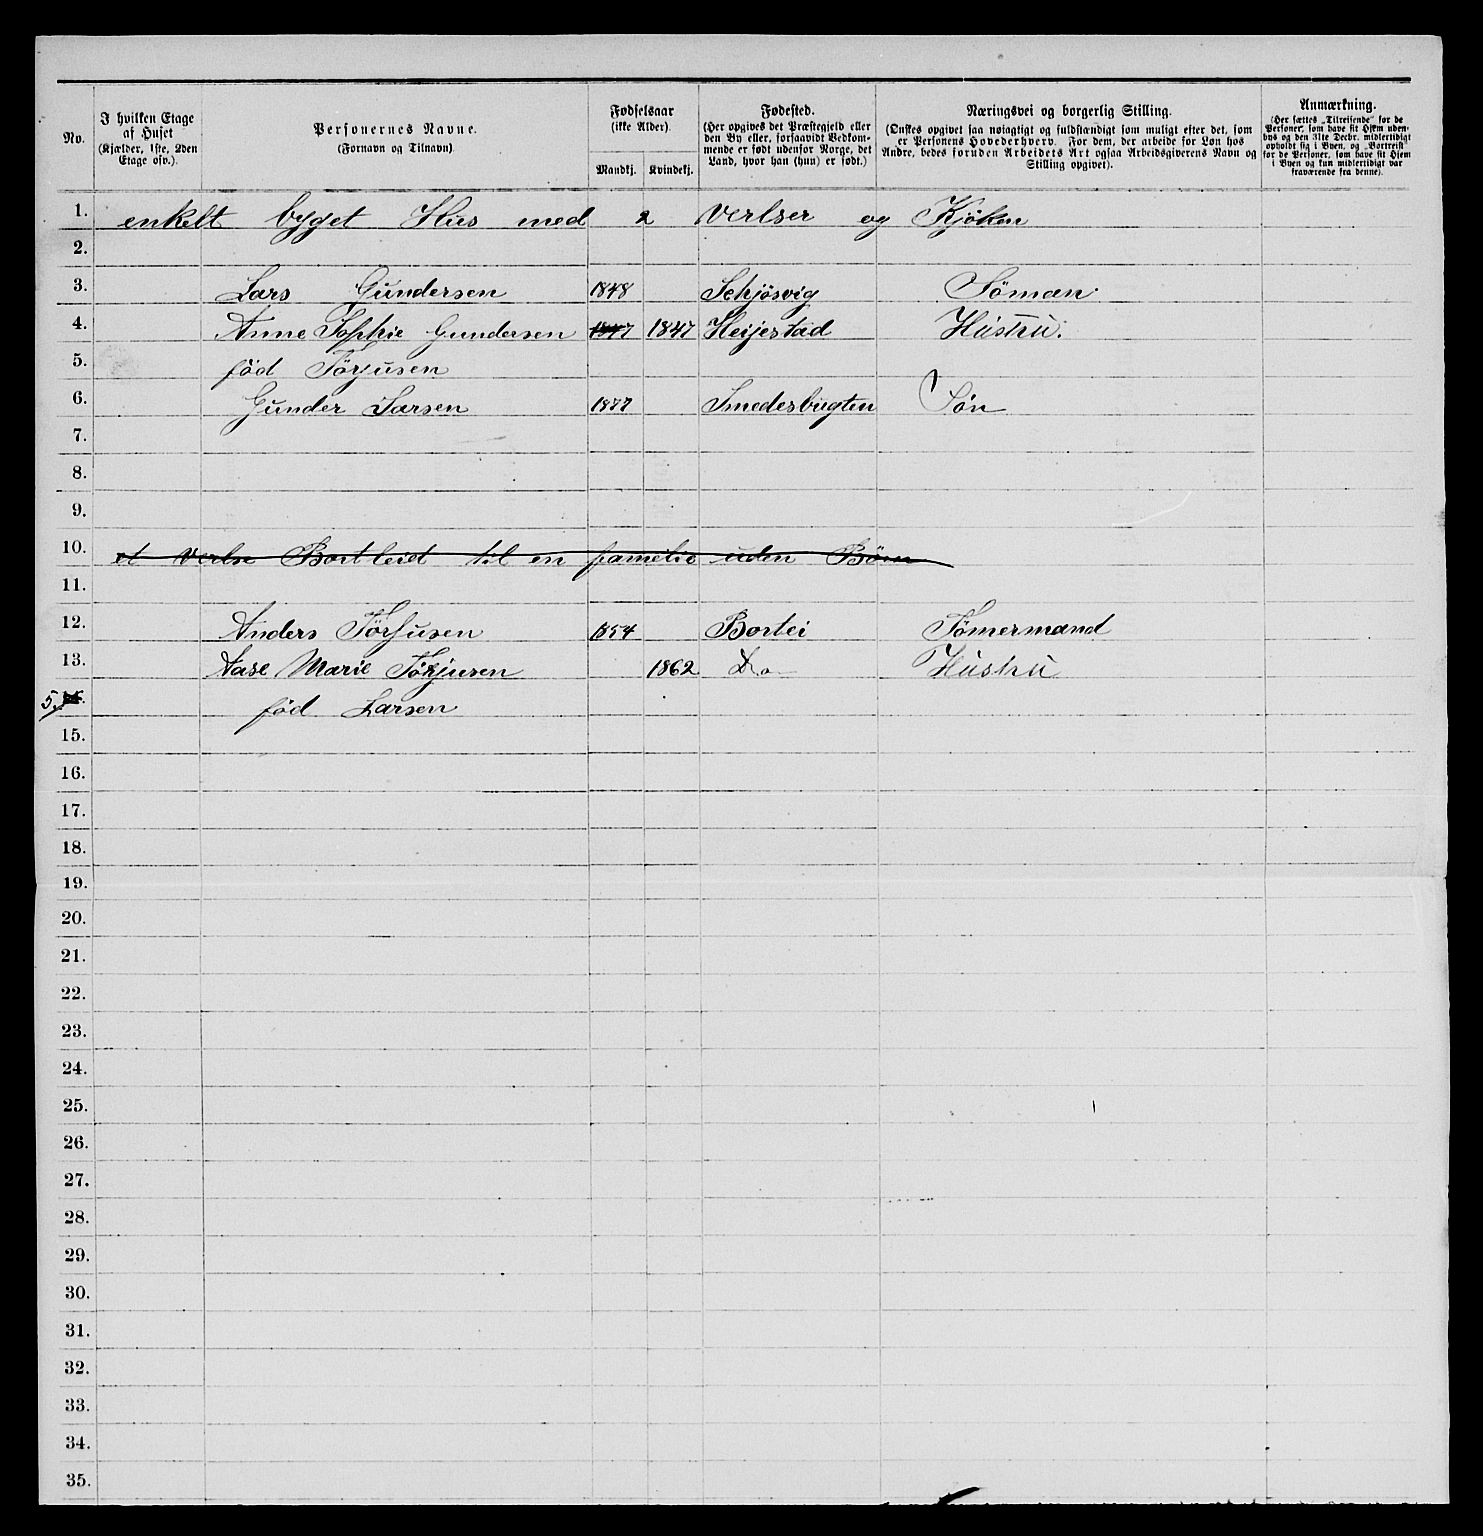 No.
I hvilken Etage af Huset (Kjælder, 1ste, 2den Etage osv.).
Personernes Navne. (Fornavn og Tilnavn).
Fødselsaar (ikke Alder).
Mandkj. Kvindekj.
Fødested. (Her opgives det Præstegjeld eller den By eller, forsaavidt Vedkommende er født udenfor Norge, det Land, hvor han (hun) er født.)
Næringsvei og borgerlig Stilling. (Ønskes opgivet saa nøiagtigt og fuldstændigt som muligt efter det, som er Personens Hovederhverv. For dem, der arbeide for Løn hos Andre, bedes foruden Arbeidets Art ogsaa Arbeidsgiverens Navn og Stilling opgivet).
Anmærkning. (Her sættes „Tilreisende" for de Personer, som have sit Hjem udenbys og den 31te Decbr. midlertidigt opholdt sig i Byen, og „Bortreist" for de Personer, som have sit Hjem i Byen og kun midlertidigt var fraværende fra denne).
1. enkelt bygget Hus med 2 Verlser og Kjøken
2.
3. Lars Gundersen 1848 Schjösvig Söman
4. Anne Sophie Gundersen 1847 1847 Heijestad Hustru.
5. föd Törjusen
6. Gunder Larsen 1877 Smedesbugten Sön
7.
8.
9.
10. et Verlse Bortleiet til en famelie uden Börn
11.
12. Anders Törjusen 1854 Bortei Tömermand
13. Aase Marie Törjusen 1862 Do Hustru
5. föd Larsen
15.
16.
17.
18.
19.
20.
21.
22.
23.
24.
25.
26.
27.
28.
29.
30.
31.
32.
33.
34.
35.